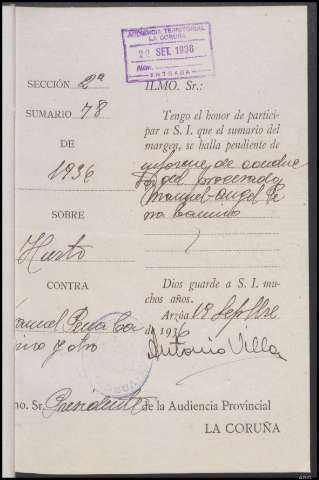 AUDIENCIA TERRITORIAL
LA CORUÑA
22 SET. 1936
Núm.
ENTRADA
SECCIÓN 2ª
SUMARIO 78
DE
1936
SOBRE
Hurto
CONTRA
anuel Pena Ca
mino y otro
ILMO. Sr.:
Tengo el honor de partici-
par a S. I. que el sumario del
margen, se halla pendiente de
informe de conduc
del procesado
Manuel Angel Pe
na Camino
Dios guarde a S. I. mu-
chos años.
Arzúa 19 Sepbre
de 1936
Antonio Villa
mo. Sr. Presidente de la Audiencia Provincial
LA CORUÑA